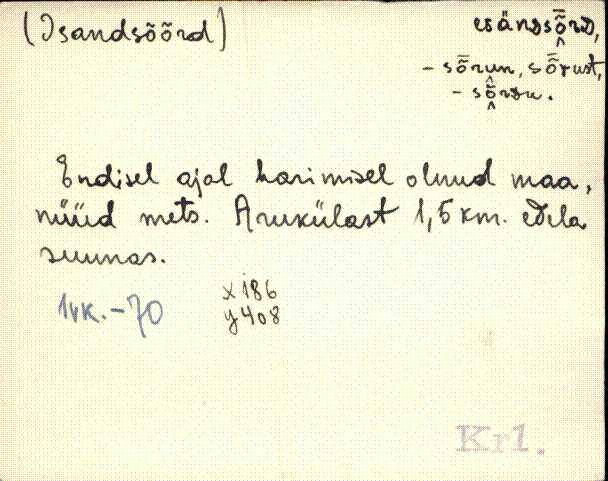 (Isandsõõrd)
esändsȭ̭rd,
- sȭ̭run, sȭrust,
- sȭ̭rdu.
Endisel ajal harimisel olnud maa,
nüüd mets. Arukülast 1,5 km. edela
suunas.
1vk. - 70
x 186
y 408
Krl.